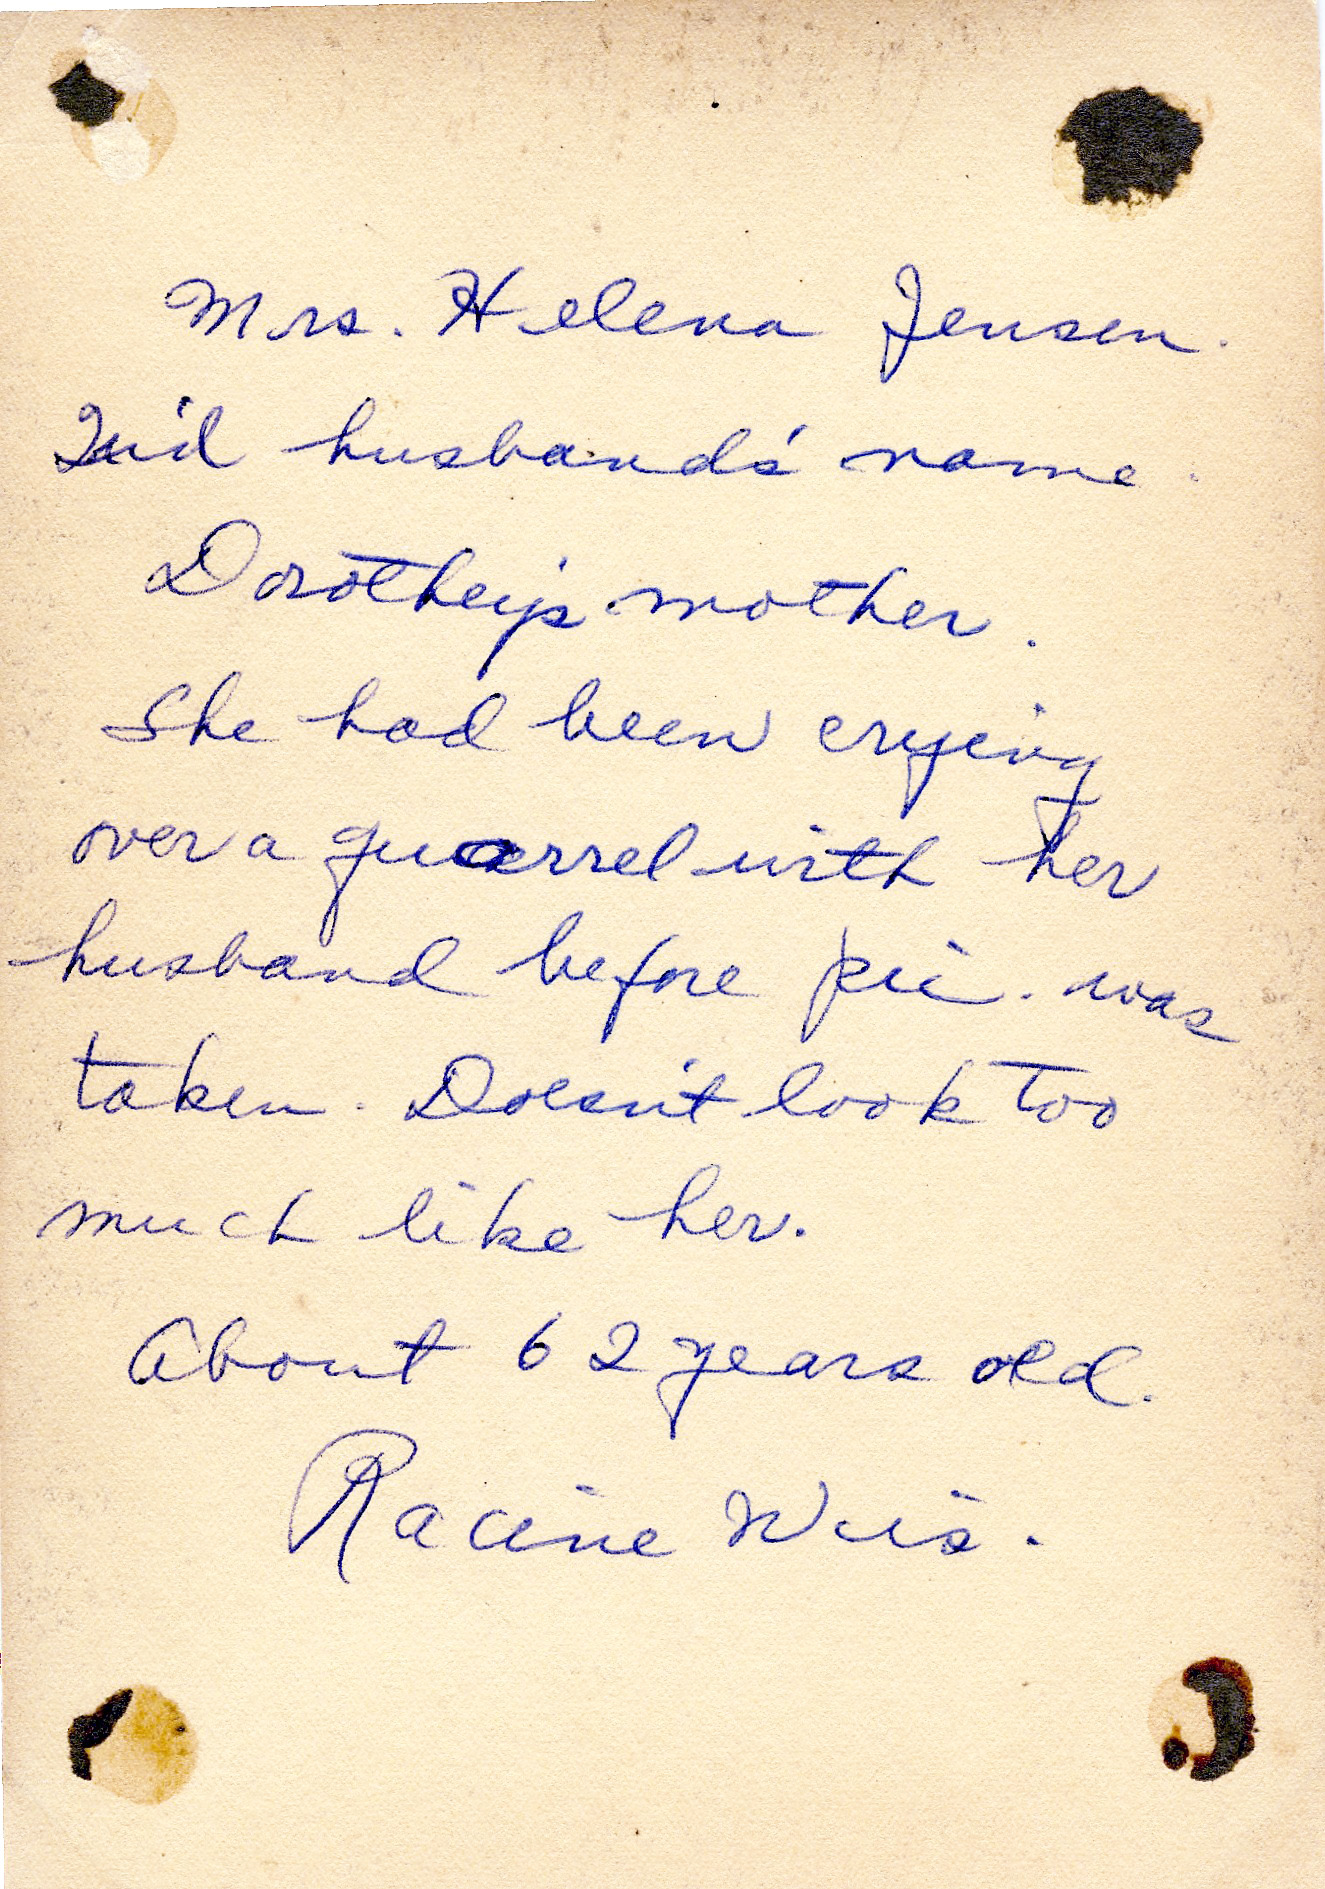 Mrs. Helena Jensen.
2nd husbands' name.
Dorothey's mother.
She had been crying
over a quarrel with her
husband before pic. was
taken. Doesn't look too
much like her.
About 62 years old.
Racine Wis.